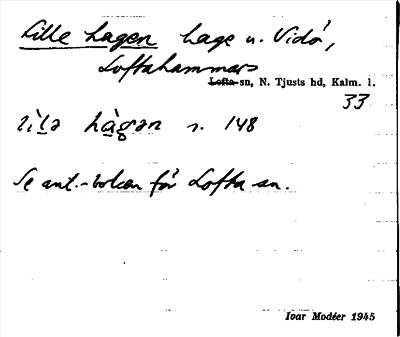 Lille hagen hage u. Vidö,
Loftahammars
Lofta-sn, N. Tjusts hd, Kalm. l.
33
lìlə hàgən s. 148
Se ant.-boken för Lofta sn.
Ivar Modéer 1945